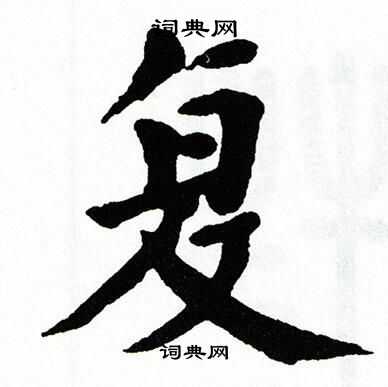 词典网
复
词典网